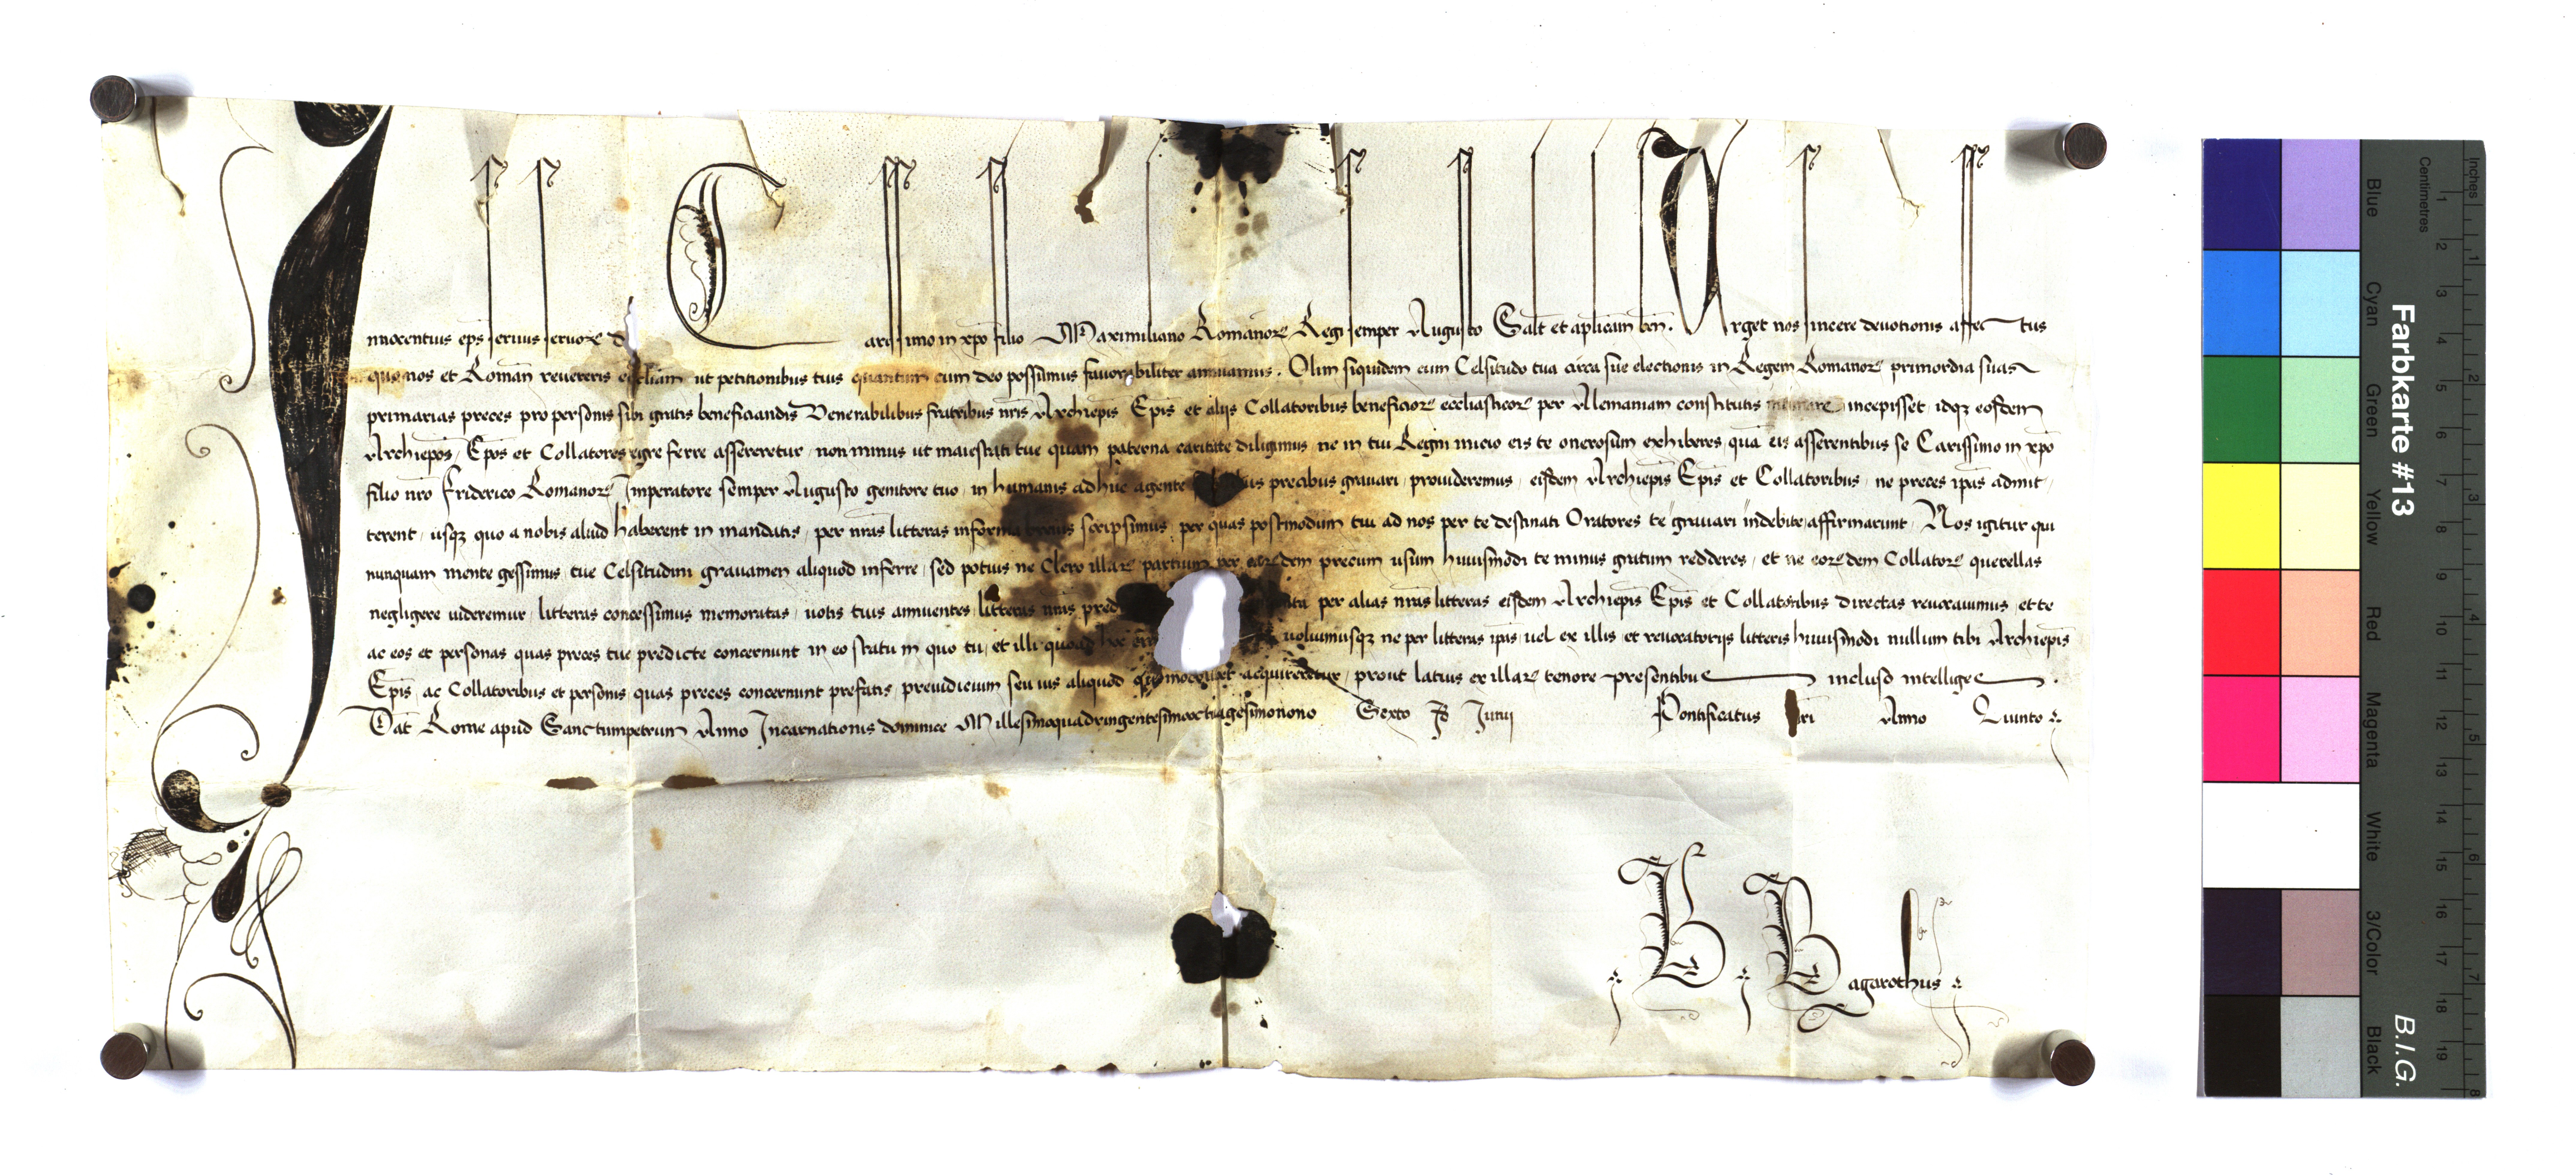 Innocentius ep̄s servus servoꝝ d
Carissimo in xp̄o filio Maximiliano Romanoꝝ Regi semper Augusto Salt̄ et ap̄licam̄ ben̄. Urget nos sincere devotionis affectus
quo nos et Romān revereris eccliam ut petitionibus tuis quantum cum deo possumus favorabiliter annuamus. Olim siquidem cum Celsitudo tua circa sue electionis in Regem Romanoꝝ primordia suas
primarias preces pro personis sibi gratis beneficiandis Venerabilibus fratribus nr̄is Archiepīs Epīs et aliis Collatoribus beneficioꝝ eccl̄iasticoꝝ per Alemaniam constitutis incepisset, idqꝫ eosdem
Archiepōs, Epōs et Collatores egre ferre assereretur, non minus ut maiestati tue quam paterna caritate diligimus ne in tui Regni inicio eis te onerosum exhiberes, quā eis asserentibus se Carissimo in xp̄o
filio nr̄o Friderico Romanoꝝ Imperatore semper Augusto genitore tuo, in humanis adhuc agente precibus gravari, provideremus, eisdem Archiepīs Epīs et Collatoribus, ne preces ip̄as admit-
terent, usqꝫ quo a nobis aliud haberent in mandatis, per nr̄as litteras in forma brevis scripsimus, per quas postmodum tui ad nos per te destinati Oratores te gravari indebite affirmarunt, Nos igitur qui
nunquam mente gessimus tue Celsitudini gravamen aliquod inferre, sed potius ne Clero illaꝝ partium per eaꝝdem precum usum huiusmodi te minus gratum redderes, et ne eoꝝdem Collatoꝝ querellas
negligere videremur, litteras concessimus memoratas, votis tuis annuentes, litteras nr̄as per alias nr̄as litteras eisdem Archiepīs Epīs et Collatoribus directas revocavimus, et te
ac eos et personas quas preces tue predicte concernunt in eo statu in quo tu, et illi quoad hoc volumusqꝫ ne per litteras ip̄as, vel ex illis, et revocatoriis litteris huiusmodi nullum tibi Archiepīs
Epīs, ac Collatoribus et personis quas preces concernunt prefatis, preiudicium seu ius aliquod quomodolibet acquireretur, prout latius ex illaꝝ tenore presentibus incluso intelliges.
Dat̄ Rome apud Sanctumpetrum Anno Incarnationis dominice Millesimoquadringentesimooctuagesimonono Sexto Id̄ Junii Pontificatus nr̄i Anno Quinto
B. Bagarothus
Farbkarte #13
B.I.G.
Centimetres
Inches
Blue
Cyan
Green
Yellow
Red
Magenta
White
3/Color
Black
1
2
3
4
5
6
7
8
9
10
11
12
13
14
15
16
17
18
19
1
2
3
4
5
6
7
8